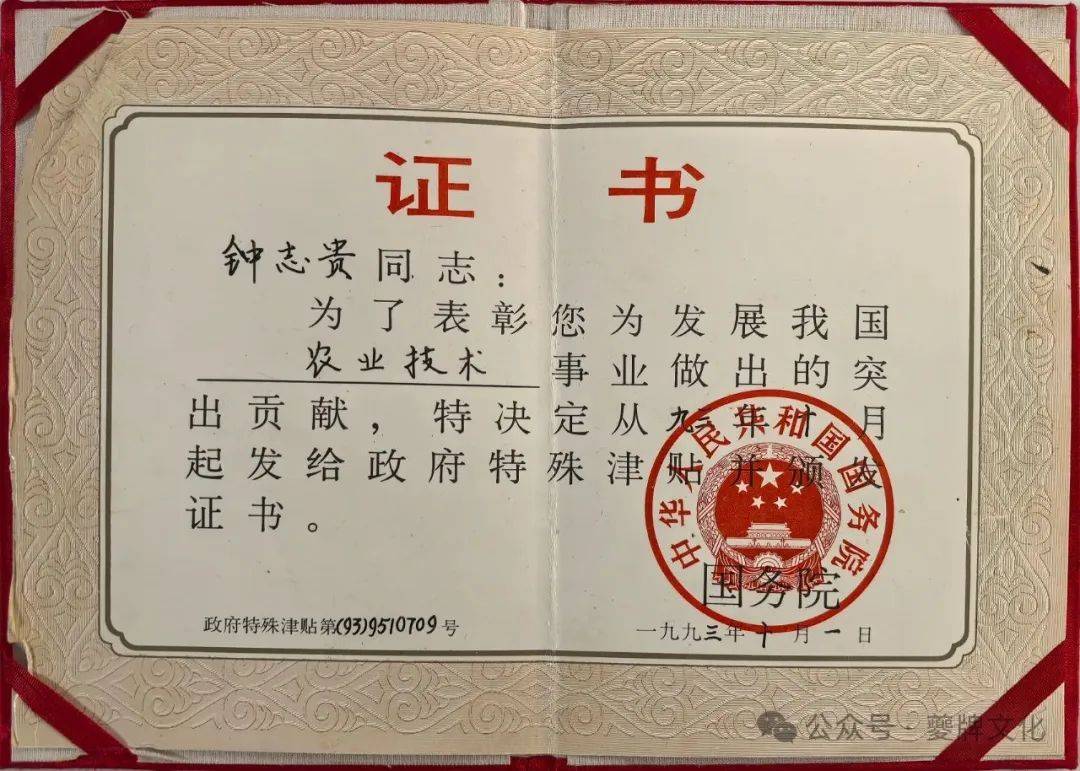 证书
钟志贵同志：
为了表彰您为发展我国
农业技术事业做出的突
出贡献，特决定从九三年十月
起发给政府特殊津贴并颁发
证书。
中华人民共和国国务院
国务院
政府特殊津贴第(93)9510709号
一九九三年十月一日
公众号·夔牌文化